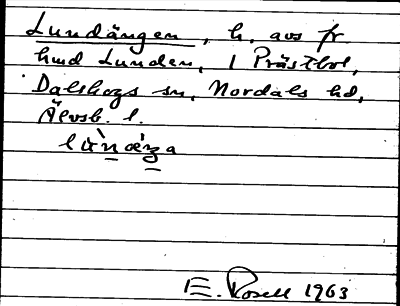 Lundängen, h. avs fr.
hmd Lunden, 1 Prästbol,
Dalskogs sn, Nordals hd,
Älvsb. l.
E. Rosell 1963